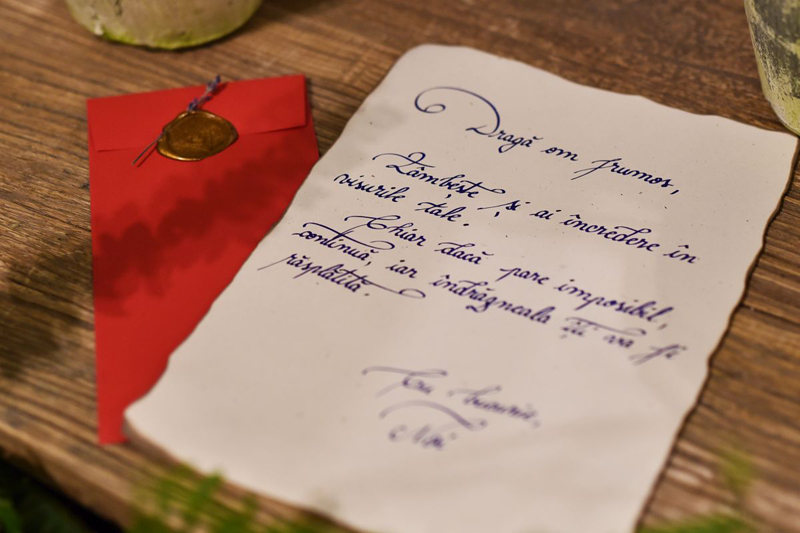 Dragă om frumos,
Zâmbește și ai încredere în
visurile tale.
Chiar dacă pare imposibil,
continuă, iar îndrăzneala îți va fi
răsplătită.
Cu bucurie,
Noi